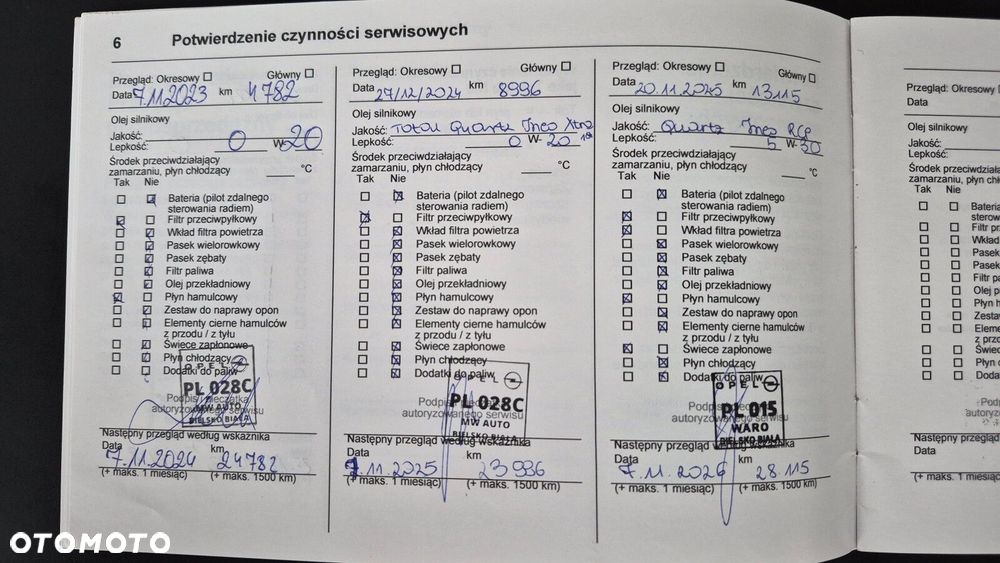 6 Potwierdzenie czynności serwisowych
Przegląd: Okresowy Główny
Data 7.11.2023 km 4782
Olej silnikowy
Jakość:
Lepkość: 0 W- 20
Środek przeciwdziałający
zamarzaniu, płyn chłodzący °C
Tak Nie
Bateria (pilot zdalnego
sterowania radiem)
Filtr przeciwpyłkowy
Wkład filtra powietrza
Pasek wielorowkowy
Pasek zębaty
Filtr paliwa
Olej przekładniowy
Płyn hamulcowy
Zestaw do naprawy opon
Elementy cierne hamulców
z przodu / z tyłu
Świece zapłonowe
Płyn chłodzący
Dodatki do paliw
OPEL
PL 028C
MW AUTO
BIELSKO BIAŁA
Podpis i pieczątka
autoryzowanego serwisu
Następny przegląd według wskaźnika
Data km
7.11.2024 24782
(+ maks. 1 miesiąc) (+ maks. 1500 km)
Przegląd: Okresowy Główny
Data 27/12/2024 km 8996
Olej silnikowy
Jakość: Total Quartz Ineo Xtra
Lepkość: 0 W- 20
Środek przeciwdziałający
zamarzaniu, płyn chłodzący °C
Tak Nie
Bateria (pilot zdalnego
sterowania radiem)
Filtr przeciwpyłkowy
Wkład filtra powietrza
Pasek wielorowkowy
Pasek zębaty
Filtr paliwa
Olej przekładniowy
Płyn hamulcowy
Zestaw do naprawy opon
Elementy cierne hamulców
z przodu / z tyłu
Świece zapłonowe
Płyn chłodzący
Dodatki do paliw
OPEL
PL 028C
MW AUTO
BIELSKO BIAŁA
Podpis i pieczątka
autoryzowanego serwisu
Następny przegląd według wskaźnika
Data km
7.11.2025 23996
(+ maks. 1 miesiąc) (+ maks. 1500 km)
Przegląd: Okresowy Główny
Data 20.11.2025 km 13115
Olej silnikowy
Jakość: Quartz Ineo RCP
Lepkość: 5 W- 30
Środek przeciwdziałający
zamarzaniu, płyn chłodzący °C
Tak Nie
Bateria (pilot zdalnego
sterowania radiem)
Filtr przeciwpyłkowy
Wkład filtra powietrza
Pasek wielorowkowy
Pasek zębaty
Filtr paliwa
Olej przekładniowy
Płyn hamulcowy
Zestaw do naprawy opon
Elementy cierne hamulców
z przodu / z tyłu
Świece zapłonowe
Płyn chłodzący
Dodatki do paliw
OPEL
PL 015
WARO
BIELSKO-BIAŁA
Podpis i pieczątka
autoryzowanego serwisu
Następny przegląd według wskaźnika
Data km
7.11.2026 28.115
(+ maks. 1 miesiąc) (+ maks. 1500 km)
Przegląd: Okresowy
Data
Olej silnikowy
Jakość:
Lepkość:
Środek przeciwdziałając
zamarzaniu, płyn chłodz
Tak Nie
Bateria
sterowa
Filtr prz
Wkład f
Pasek
Pasek
Filtr pa
Olej p
Płyn h
Zesta
Eleme
z prz
Świec
Płyn c
Doda
Pod
autoryzo
Następny przegląd we
Data
(+ maks. 1 miesiąc)
OTOMOTO